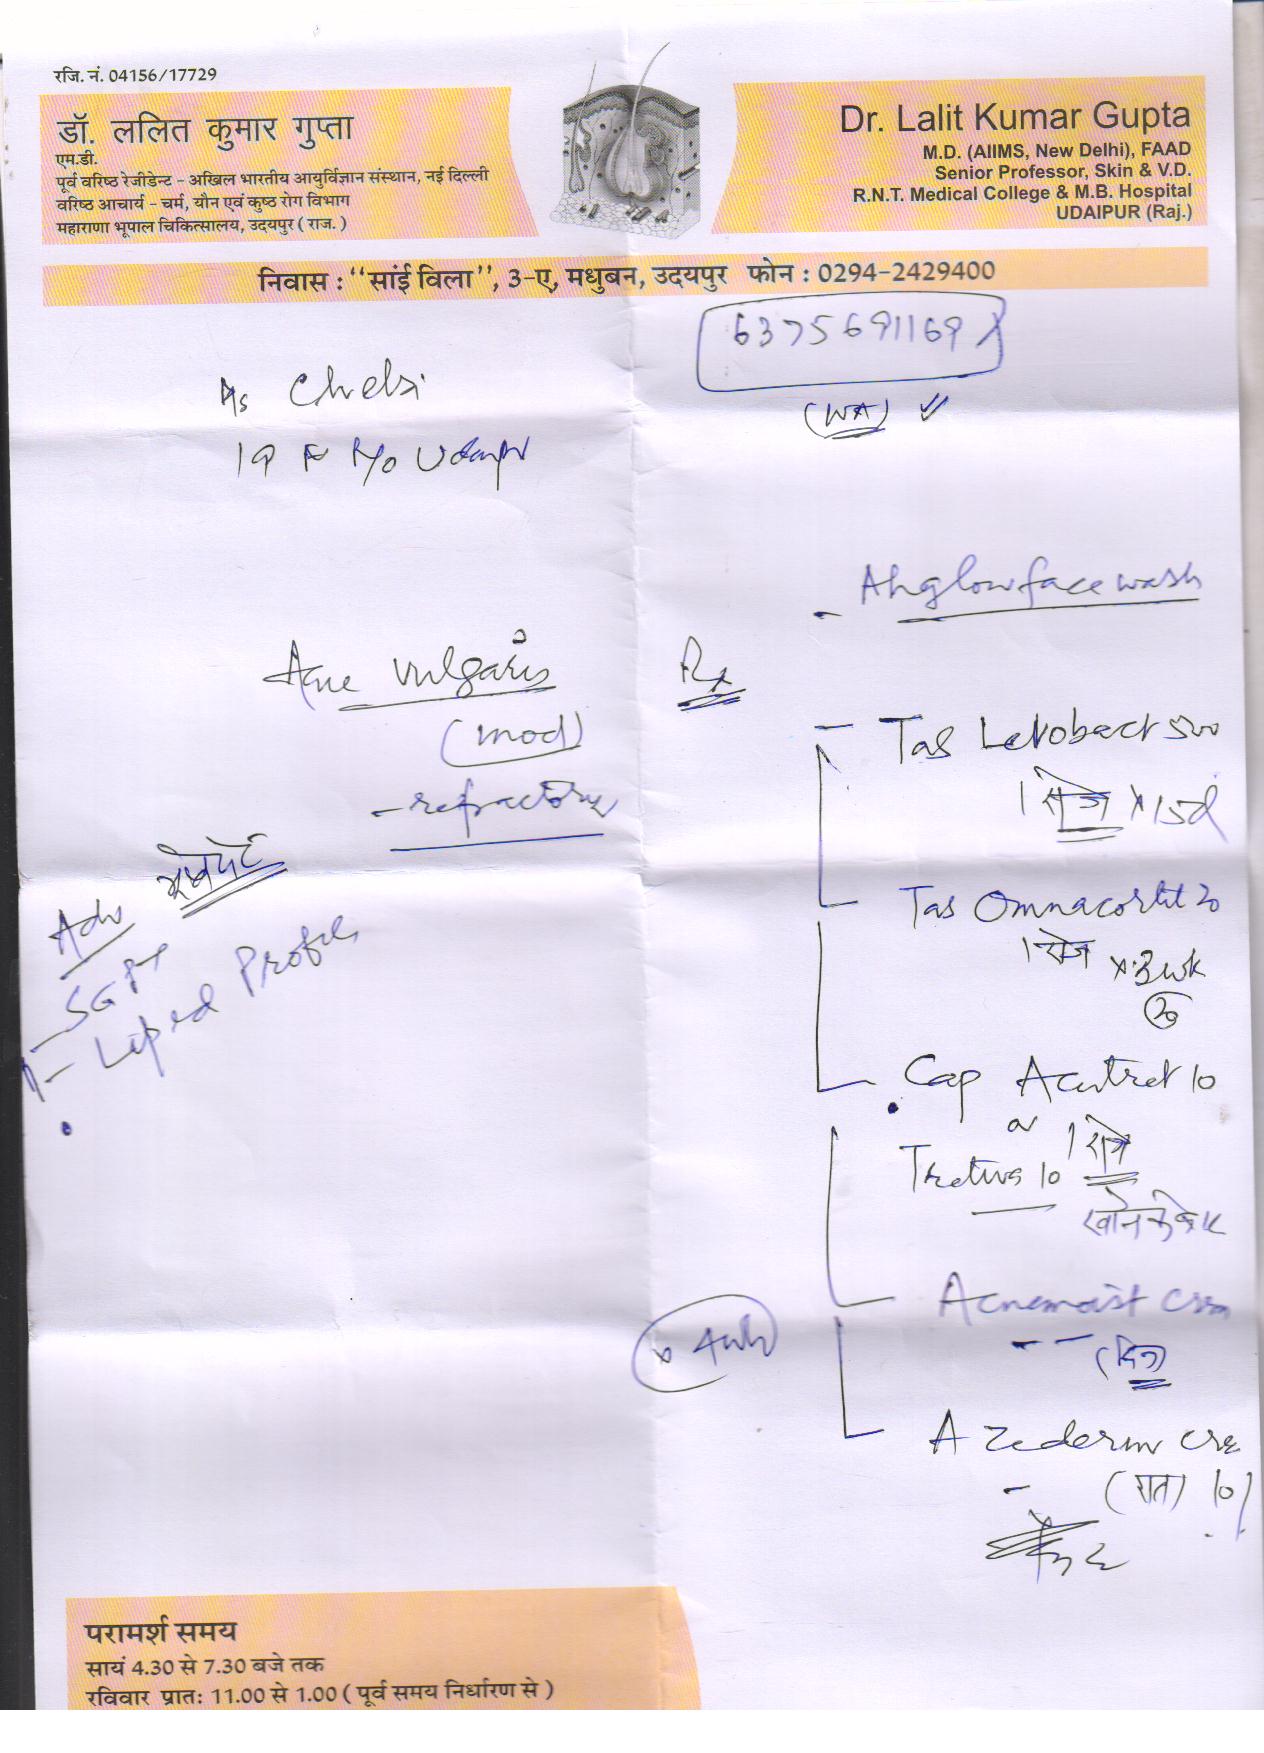 रजि. नं. 04156/17729
डॉ. ललित कुमार गुप्ता
एम.डी.
पूर्व वरिष्ठ रेजीडेन्ट - अखिल भारतीय आयुर्विज्ञान संस्थान, नई दिल्ली
वरिष्ठ आचार्य - चर्म, यौन एवं कुष्ठ रोग विभाग
महाराणा भूपाल चिकित्सालय, उदयपुर ( राज. )
Dr. Lalit Kumar Gupta
M.D. (AIIMS, New Delhi), FAAD
Senior Professor, Skin & V.D.
R.N.T. Medical College & M.B. Hospital
UDAIPUR (Raj.)
निवास : "सांई विला", 3-ए, मधुबन, उदयपुर फोन : 0294-2429400
6375691169
(WA)
Ms Chelsi
19 F R/o Udaipur
Ahglow face wash
Acne vulgaris
(mod)
- refractory
Adv
- SGPT
- Lipid Profile
Rx
- Tab Levobact 500
1 रोज x 15d
Tab Omnacortil 20
1 रोज x 3 wk
Cap Acutret 10
or
1 रात्रे
Tretiva 10
Acnemoist cream
(दिन)
x 4wk
Azederm cre
(रात) 10%
परामर्श समय
सायं 4.30 से 7.30 बजे तक
रविवार प्रातः 11.00 से 1.00 ( पूर्व समय निर्धारण से )